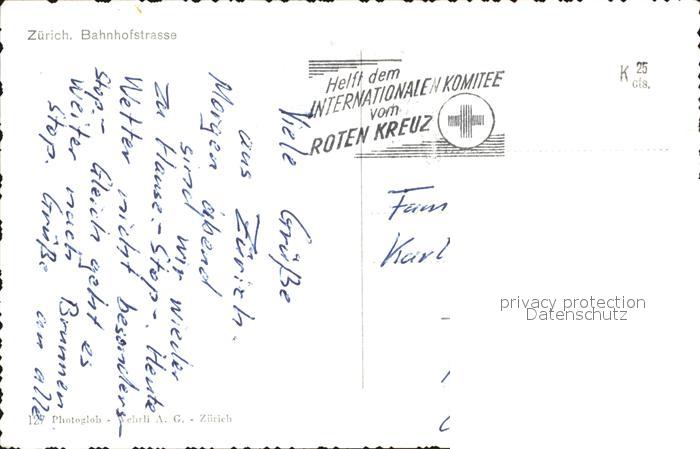 Zürich. Bahnhofstrasse
Helft dem
INTERNATIONALEN KOMITEE
vom
ROTEN KREUZ
K 25
cts.
Viele Grüße
aus Zürich.
Morgen abend
sind wir wieder
zu Hause.- Stop-. Heute
Wetter nicht besonders-
Stop.- Gleich geht es
weiter nach Brunnen
Stop. Grüße an alle.
Fam
Karl
privacy protection
Datenschutz
127 Photoglob - Wehrli A. G. - Zürich